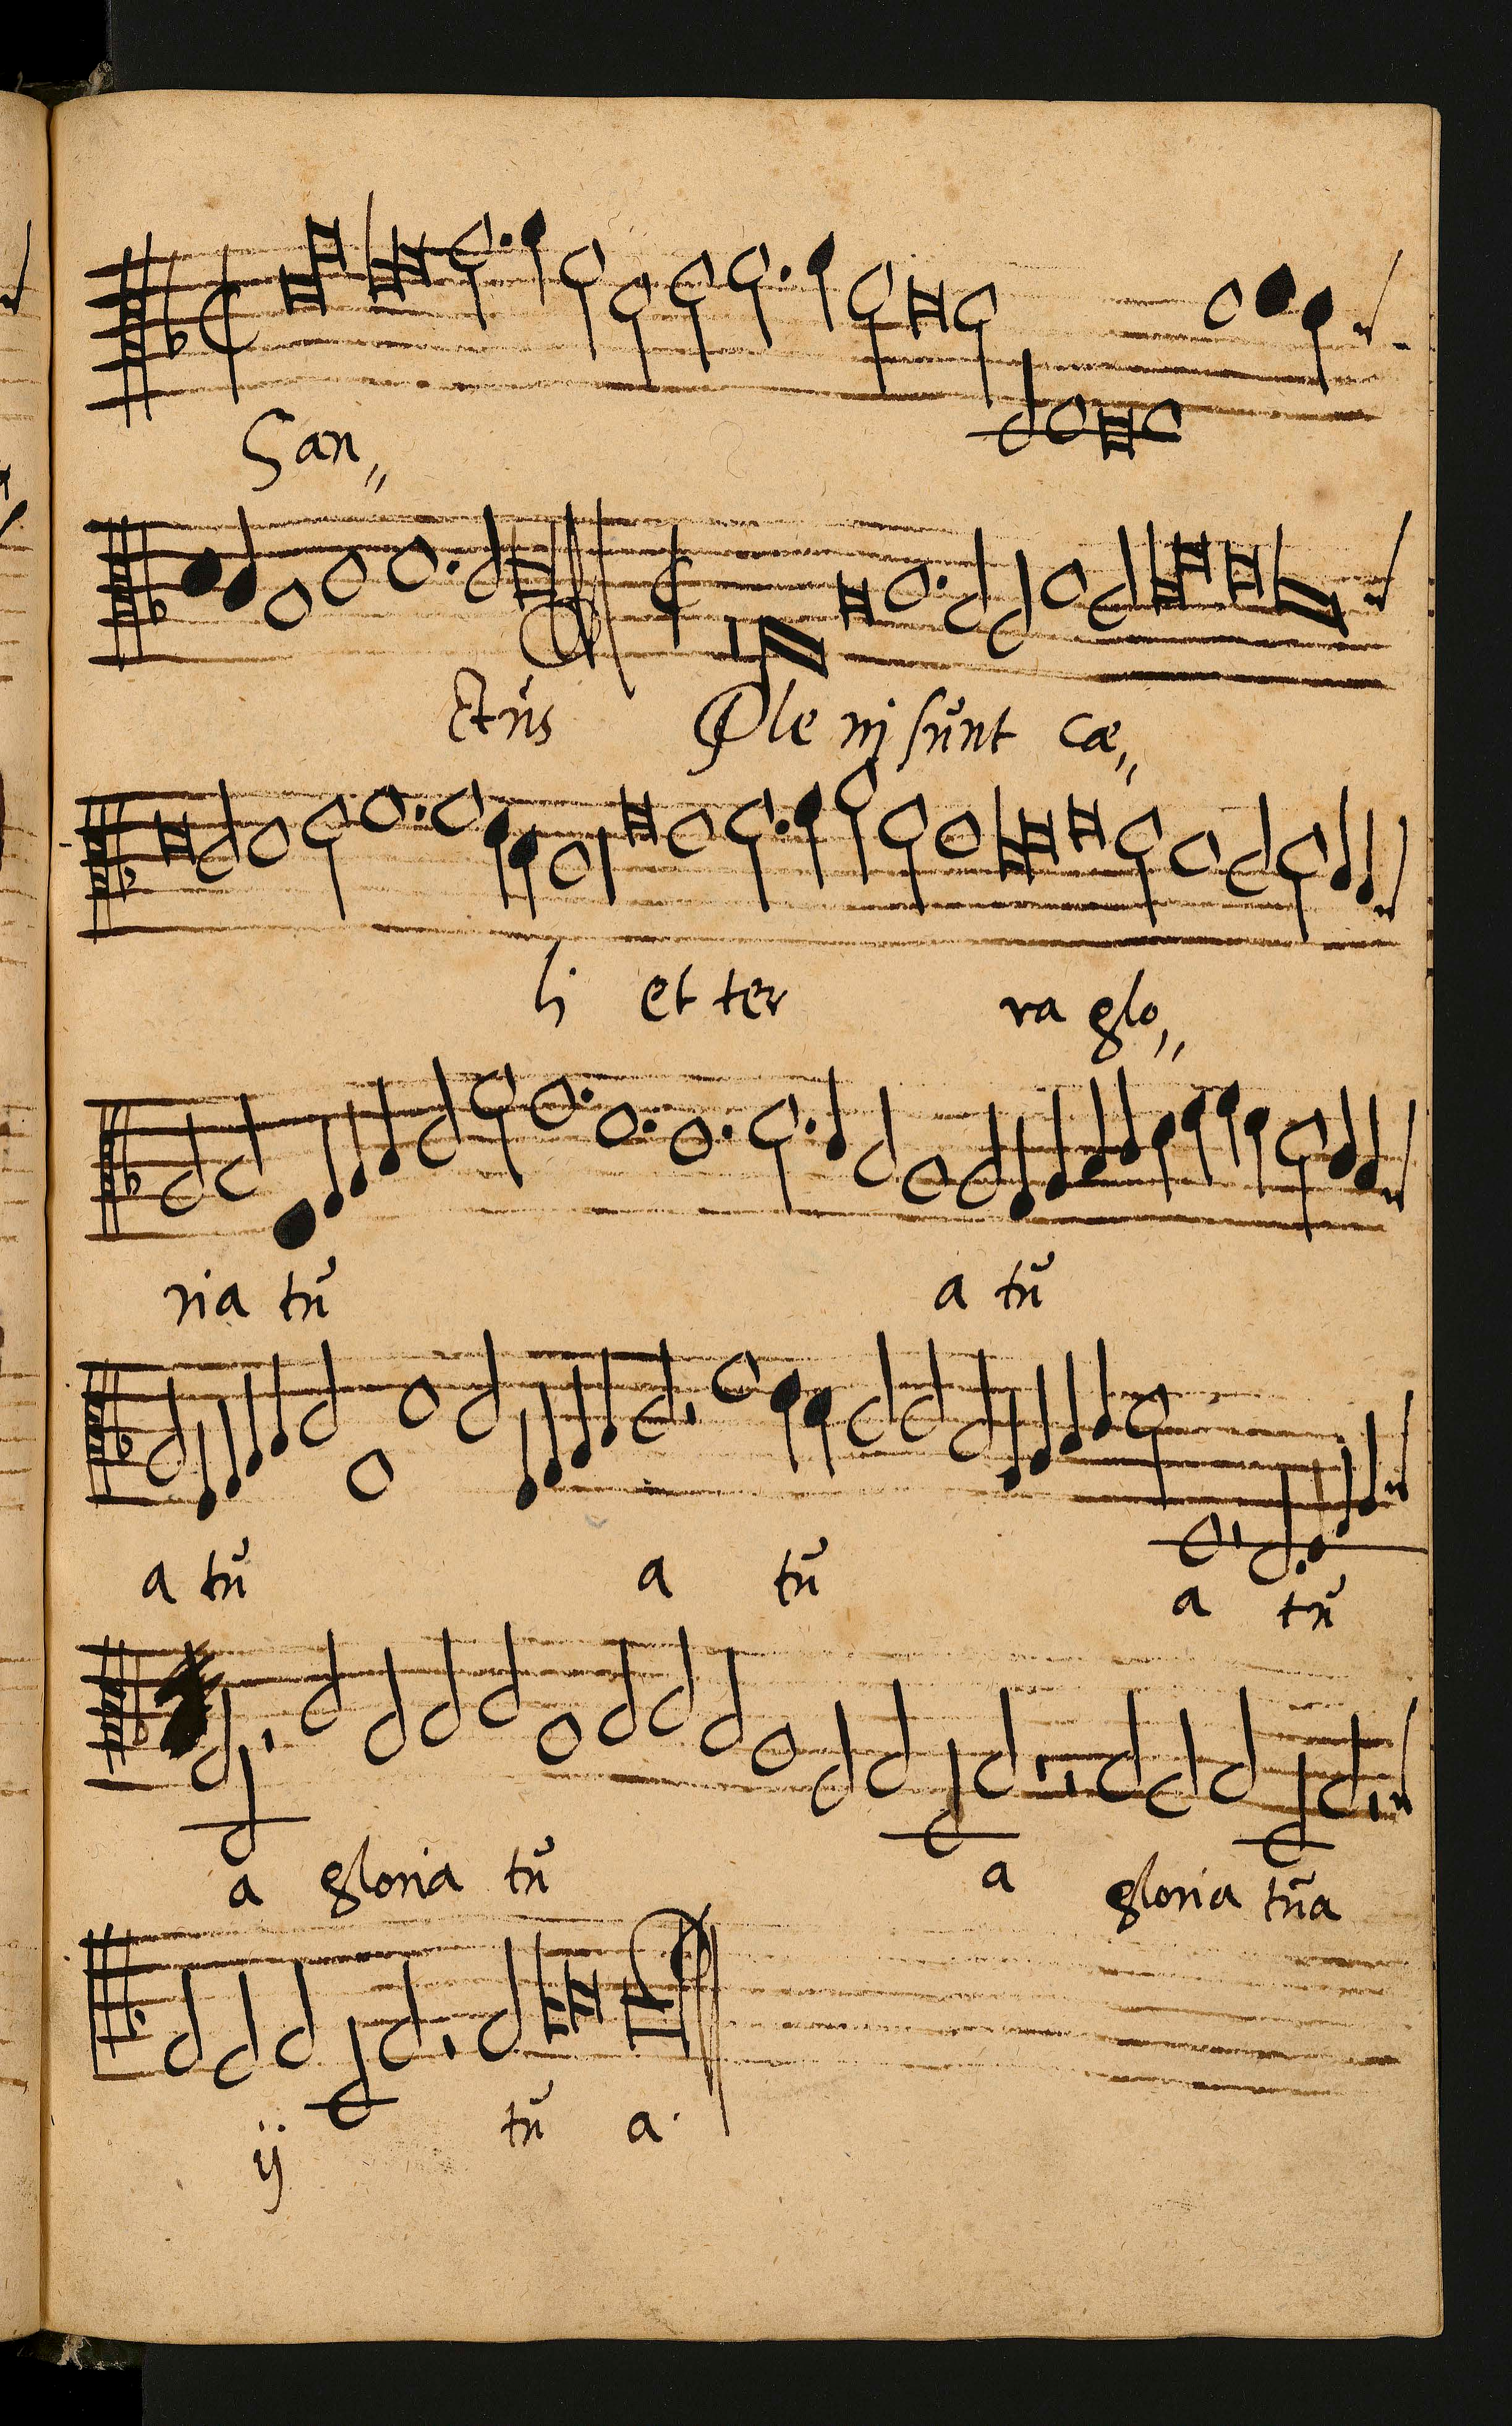 San,,
ctus Ple ni sunt cæ,,
li et ter ra glo,,
ria tu a tu
a tu a tu a tu
a gloria tu a gloria tua
ij tu a.